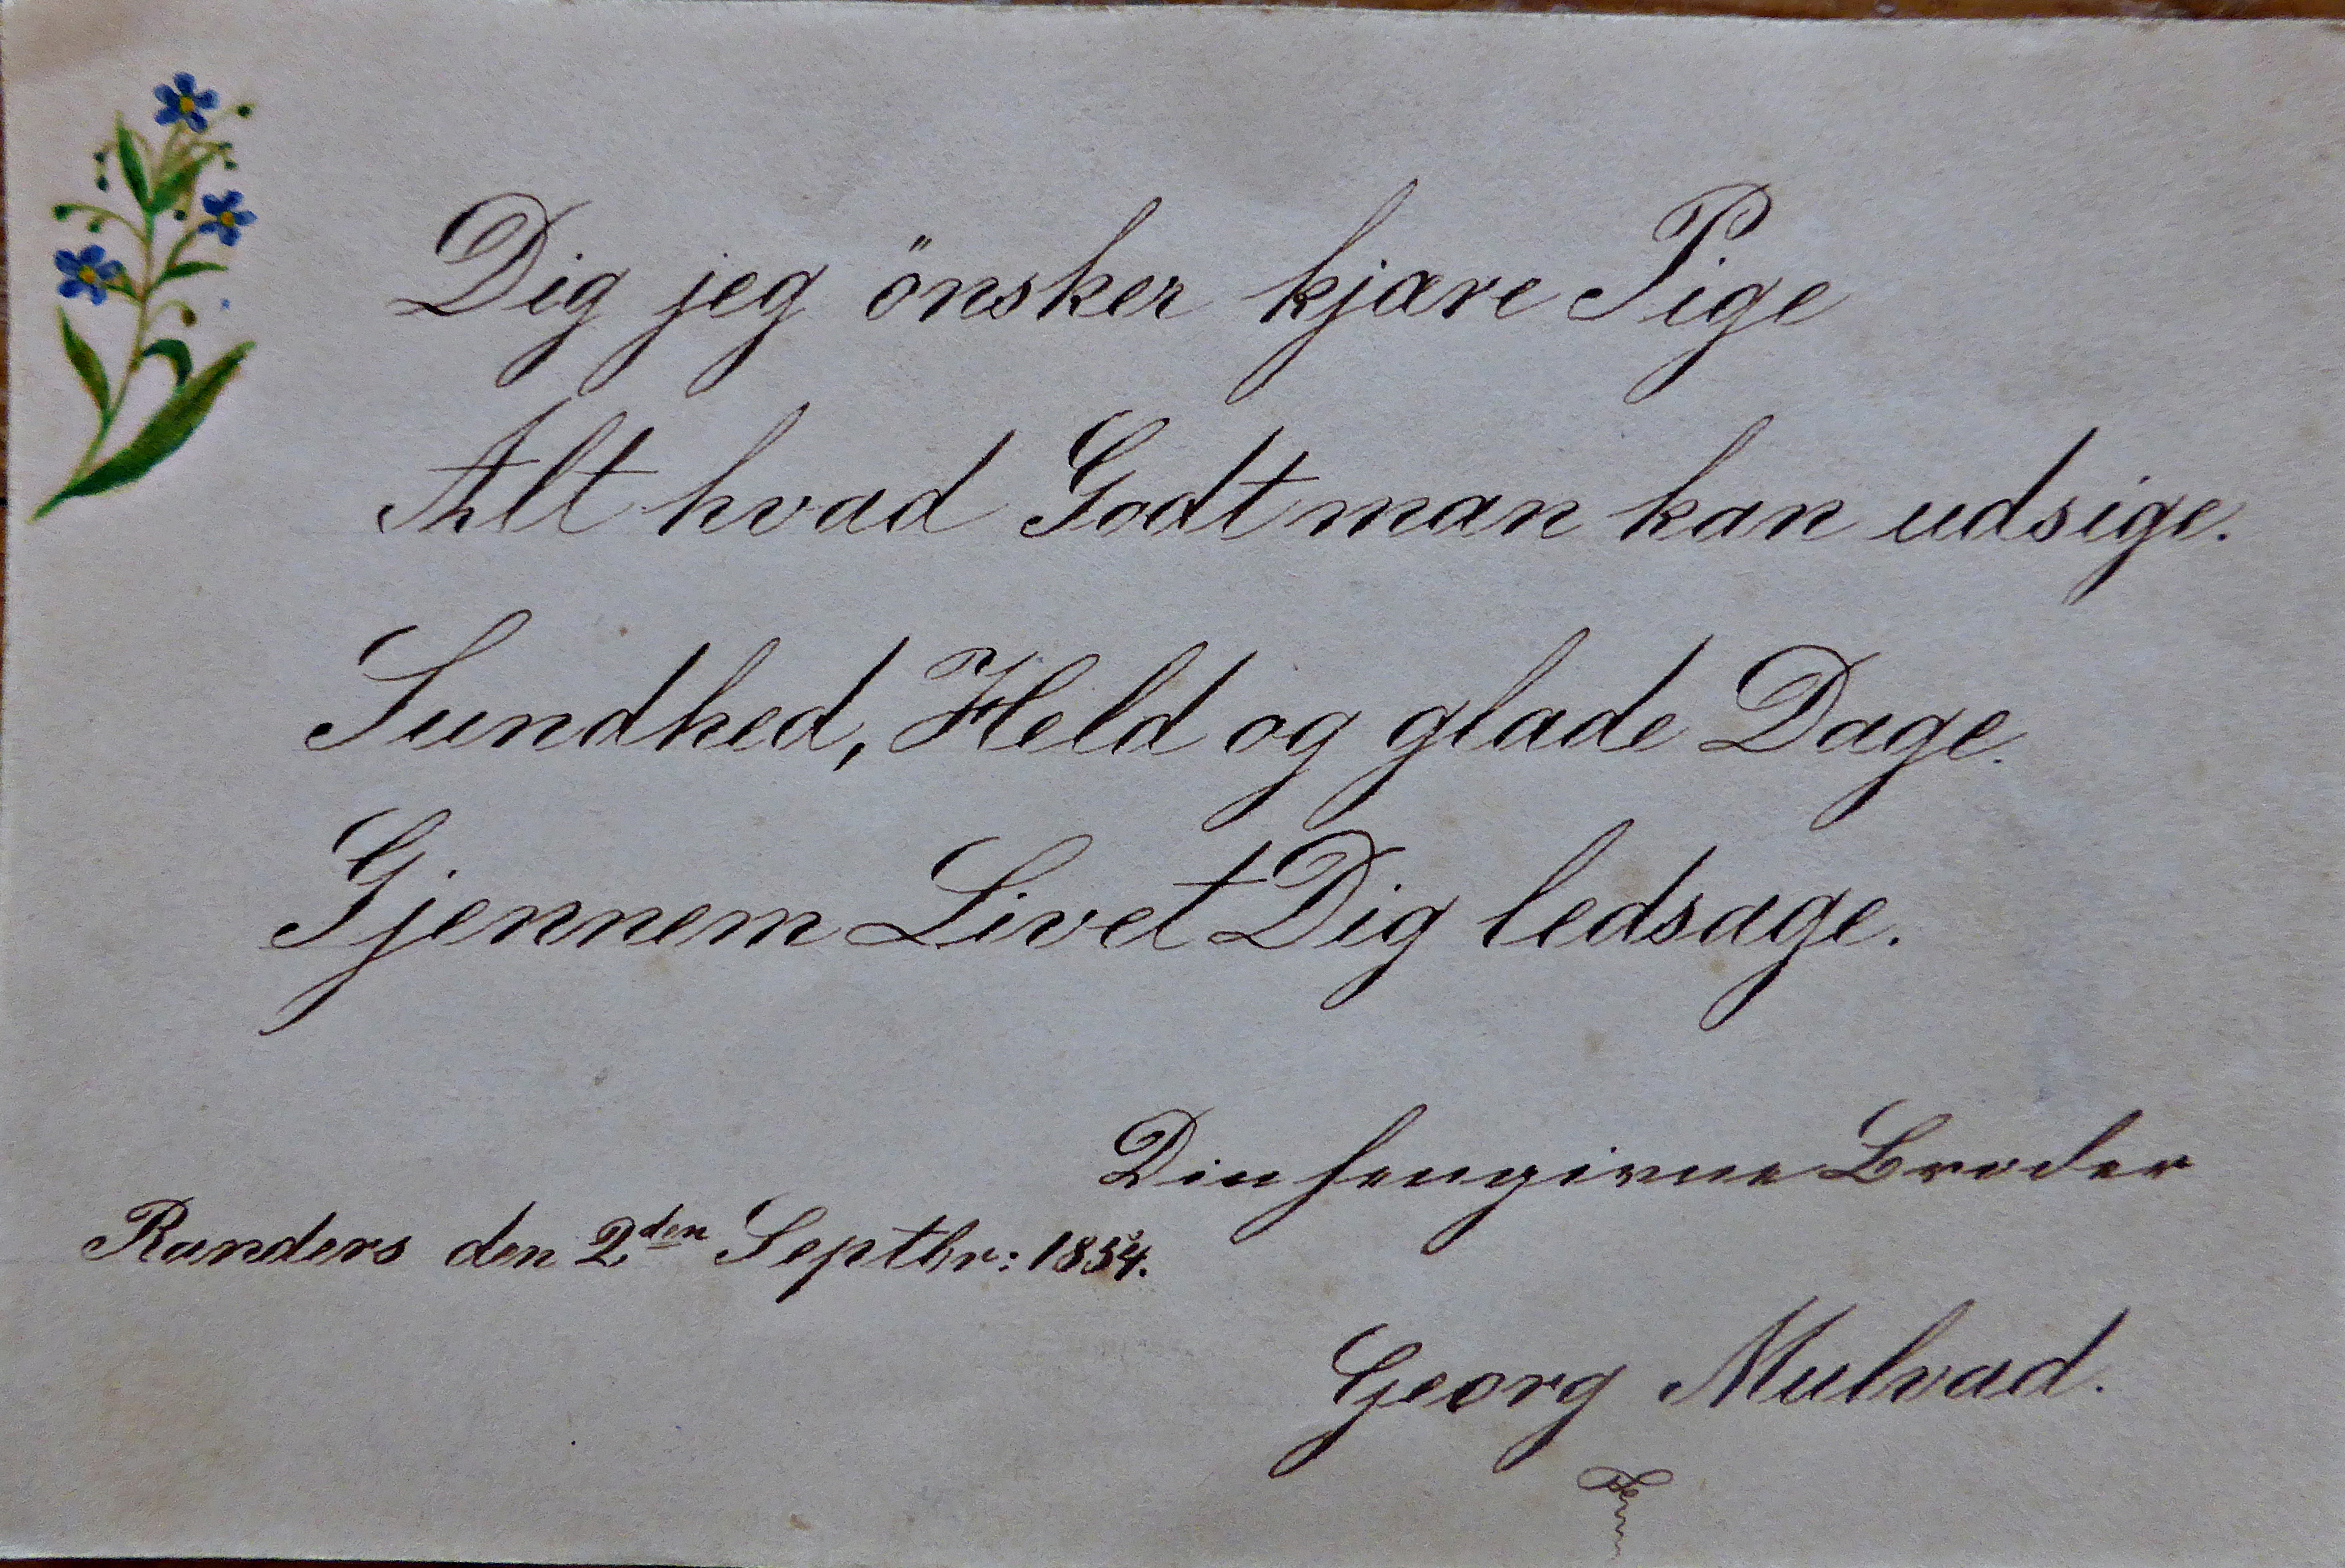 Dig jeg önsker kjære Pige
Alt hvad Godt man kan udsige.
Sundhed, Held og glade Dage.
Gjennem Livet Dig ledsage.
Din hengivne Broder
Randers den 2den Septbr: 1854.
Georg Mulvad.